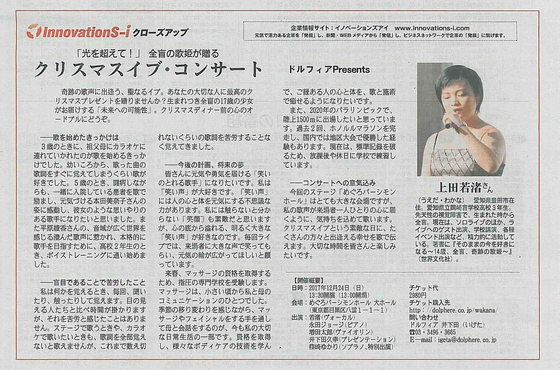 InnovationS-i クローズアップ
企業情報サイト：イノベーションズアイ www.innovations-i.com
元気で活力ある企業を「発掘」し、新聞・WEBメディアから「発信」し、ビジネスネットワークで企業の「発展」に繋げます。
「光を超えて！」 全盲の歌姫が贈る
クリスマスイブ・コンサート
ドルフィアPresents
奇跡の歌声に出逢う、聖なるイブ。あなたの大切な人に最高のク
リスマスプレゼントを贈りませんか？生まれつき全盲の17歳の少女
がお届けする「未来への可能性」。クリスマスディナー前の心のオ
ードアルにどうぞ。
──歌を始めたきっかけは
3歳のときに、祖父母にカラオケに
連れていかれたのが歌を始めるきっか
けでした。幼いころから、歌った曲の
歌詞をすぐに覚えてしまうくらい歌が
好きでした。5歳のとき、闘病しなが
らも、一緒に入院している患者を歌で
励まし、元気づける本田美奈子さんの
姿に感動し、彼女のような思いやりの
ある歌手になりたいと思いました。ま
た平原綾香さんの、音域が広く世界を
感じる澄んだ歌声に惹かれ、本格的に
歌手を目指すために、高校2年生のと
き、ボイストレーニングに通い始めま
した。
──盲目であることで苦労したこと
私は何かを覚えるとき、毎回、聞い
たり、触ったりして覚えます。目の見
える人たちと比べ時間が掛かります
が、それを苦労と感じたことはありま
せん。ステージで歌うときや、カラオ
ケで歌いたいときも、歌詞を全部覚え
ないと歌えませんが、これまで数え切
れないくらいの歌詞を苦労することな
く覚えてきました。
──今後の計画、将来の夢
皆さんに元気や勇気を届ける「笑い
のとれる歌手」になりたいです。私は
「笑い声」が大好きです。「笑い声」
には人の心と体を元気にする不思議な
力があります。私には触らないと分か
らない「笑顔」も素敵だと思います
が、心の底から溢れる、明るく大きな
「笑い声」が好きなのです。毎回ライ
ブでは、来場者に大きな声で笑っても
らい、元気の輪が広がってほしいと願
っています。
来春、マッサージの資格を取得する
ため、指圧の専門学校を受験します。
マッサージは、小さい頃から私と母の
コミュニケーションのひとつでした。
季節の移り変わりを感じながら、マッ
サージやフェイシャルをする手を通し
て母と会話をするのが、今も私の大切
な日常生活の一部です。資格を取得
し、様々なボディケアの技術を学ん
で、ご縁ある人の心と体を、歌と施術
で癒せるようになりたいです。
また、2020年のパラリンピックで、
陸上1500mに出場したいと思っていま
す。過去2回、ホノルルマラソンを完
走し、国内では地区大会で優勝した経
験もあります。現在は、標準記録を破
るため、放課後や休日に学校で練習し
ています。
──コンサートへの意気込み
今回のステージ「めぐろパーシモン
ホール」はとても大きな会場ですが、
私の歌声が来場者一人ひとりの心に届
くように、気持ちを込めて歌います。
クリスマスイブという素敵な日に、た
くさんの方々と出逢える幸せを歌で伝
えます。大切な時間を皆さんと楽しみ
たいです。
上田若渚さん
（うえだ・わかな） 愛知県豊田市在
住、愛知県立岡崎盲学校高校3年生。
先天性の視覚障害で、生まれた時から
全盲。現在は、ソロライブのほか、ラ
イブへのゲスト出演、学校講演、各種
イベント出演など、精力的に活動して
いる。著書に「そのままの今を好きに
なる～14歳、全盲、奇跡の歌姫～」
（世界文化社）。
【開催概要】
日時：2017年12月24日（日）
13:30開演（13:00開場）
会場：めぐろパーシモンホール 大ホール
（東京都目黒区八雲1－1－1）
出演：若渚（ヴォーカル）
永田ジョージ（ピアノ）
増田太郎（ヴァイオリン）
井下田久幸（プレゼンテーション）
篠崎ゆかり（ソプラノ、特別出演）
チケット代
2980円
チケット購入先
http://dolphere.co.jp/wakana/
問い合わせ
ドルフィア 井下田（いげた）
☎03・3496・3665
E－mail：igeta@dolphere.co.jp